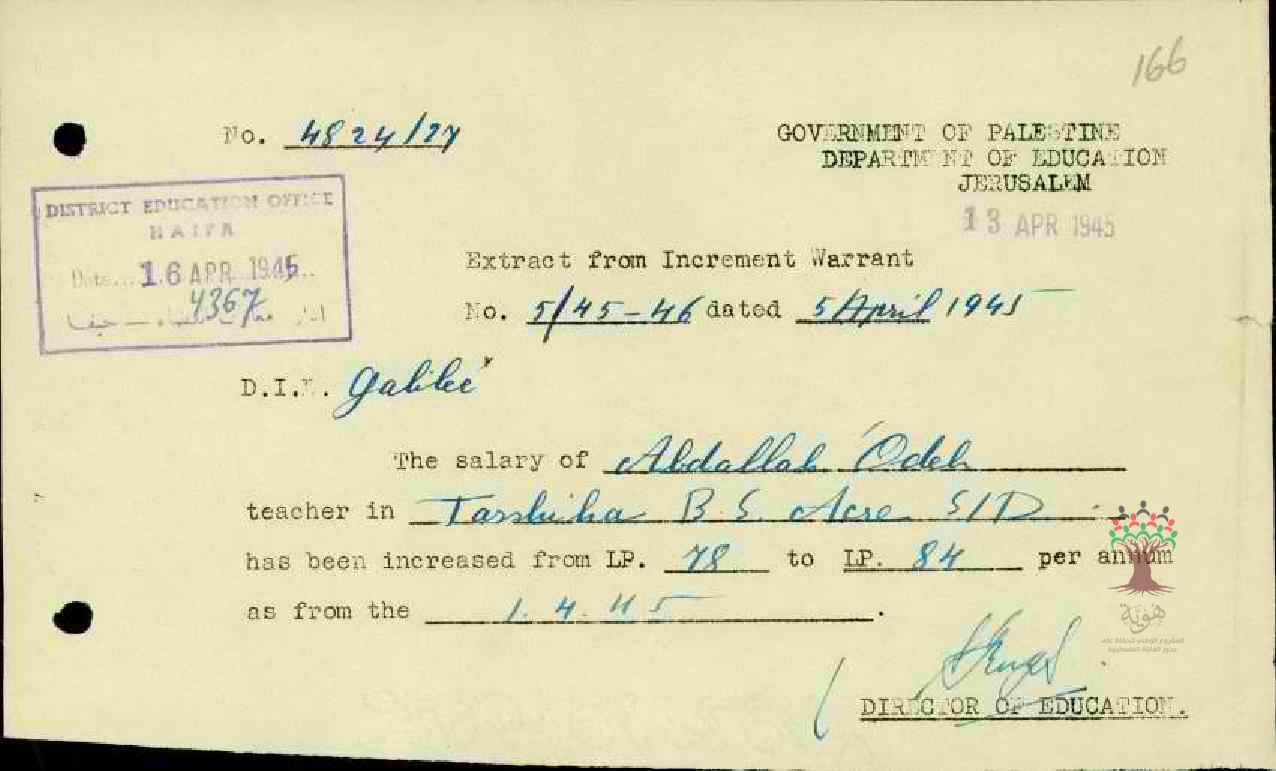 166
No. 4824/27
GOVERNMENT OF PALESTINE
DEPARTMENT OF EDUCATION
JERUSALEM
13 APR 1945
DISTRICT EDUCATION OFFICE
HAIFA
Date... 16 APR 1945..
4367
حيفا
Extract from Increment Warrant
No. 5/45-46 dated 5 April 1945
D.I.E. Galilee
The salary of Abdallah 'Odeh
teacher in Tarshiha B.S. Acre S/D
has been increased from LP. 78 to LP. 84 per annum
as from the 1.4.45.
DIRECTOR OF EDUCATION.
هوية
المشروع الوطني للحفاظ على
جذور العائلة الفلسطينية